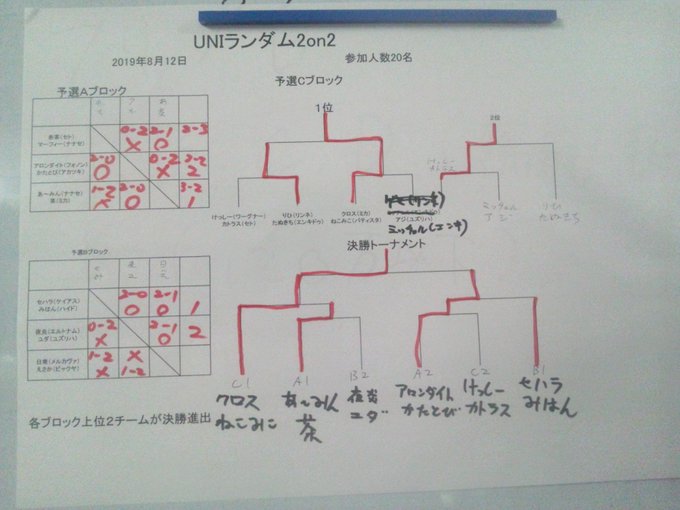 UNIランダム2on2
2019年8月12日
参加人数20名
予選Aブロック
赤茶(セト)
マーフィー(ナナセ)
0-2 2-1 2-3
X O
アロンダイト(フォノン)
かたとび(アカツキ)
2-0 0-2 2-2
O X 2
あ～みん(ナナセ)
茶(ミカ)
1-2 2-0 3-2
X O 1
予選Cブロック
1位
けっしー(ワーグナー)
カトラス(セト)
りひ(リンネ)
たぬきち(エンキドゥ)
クロス(ミカ)
ねこみこ(バティスタ)
アジ(ユズリハ)
ミッチェル(エンキ)
2位
けっしー
カトラス
ミッチェル
アジ
りひ
たぬきち
予選Bブロック
セハラ(ケイアス)
みはん(ハイド)
2-0 2-1
O O 1
夜炎(エルトナム)
ユダ(ユズリハ)
0-2 2-1
X O 2
日東(メルカヴァ)
えさか(ビャクヤ)
1-2 X
X 1-2
決勝トーナメント
C1 A1 B2 A2 C2 B1
クロス
ねこみこ
あ～みん
茶
夜炎
ユダ
アロンダイト
かたとび
けっしー
カトラス
セハラ
みはん
各ブロック上位2チームが決勝進出